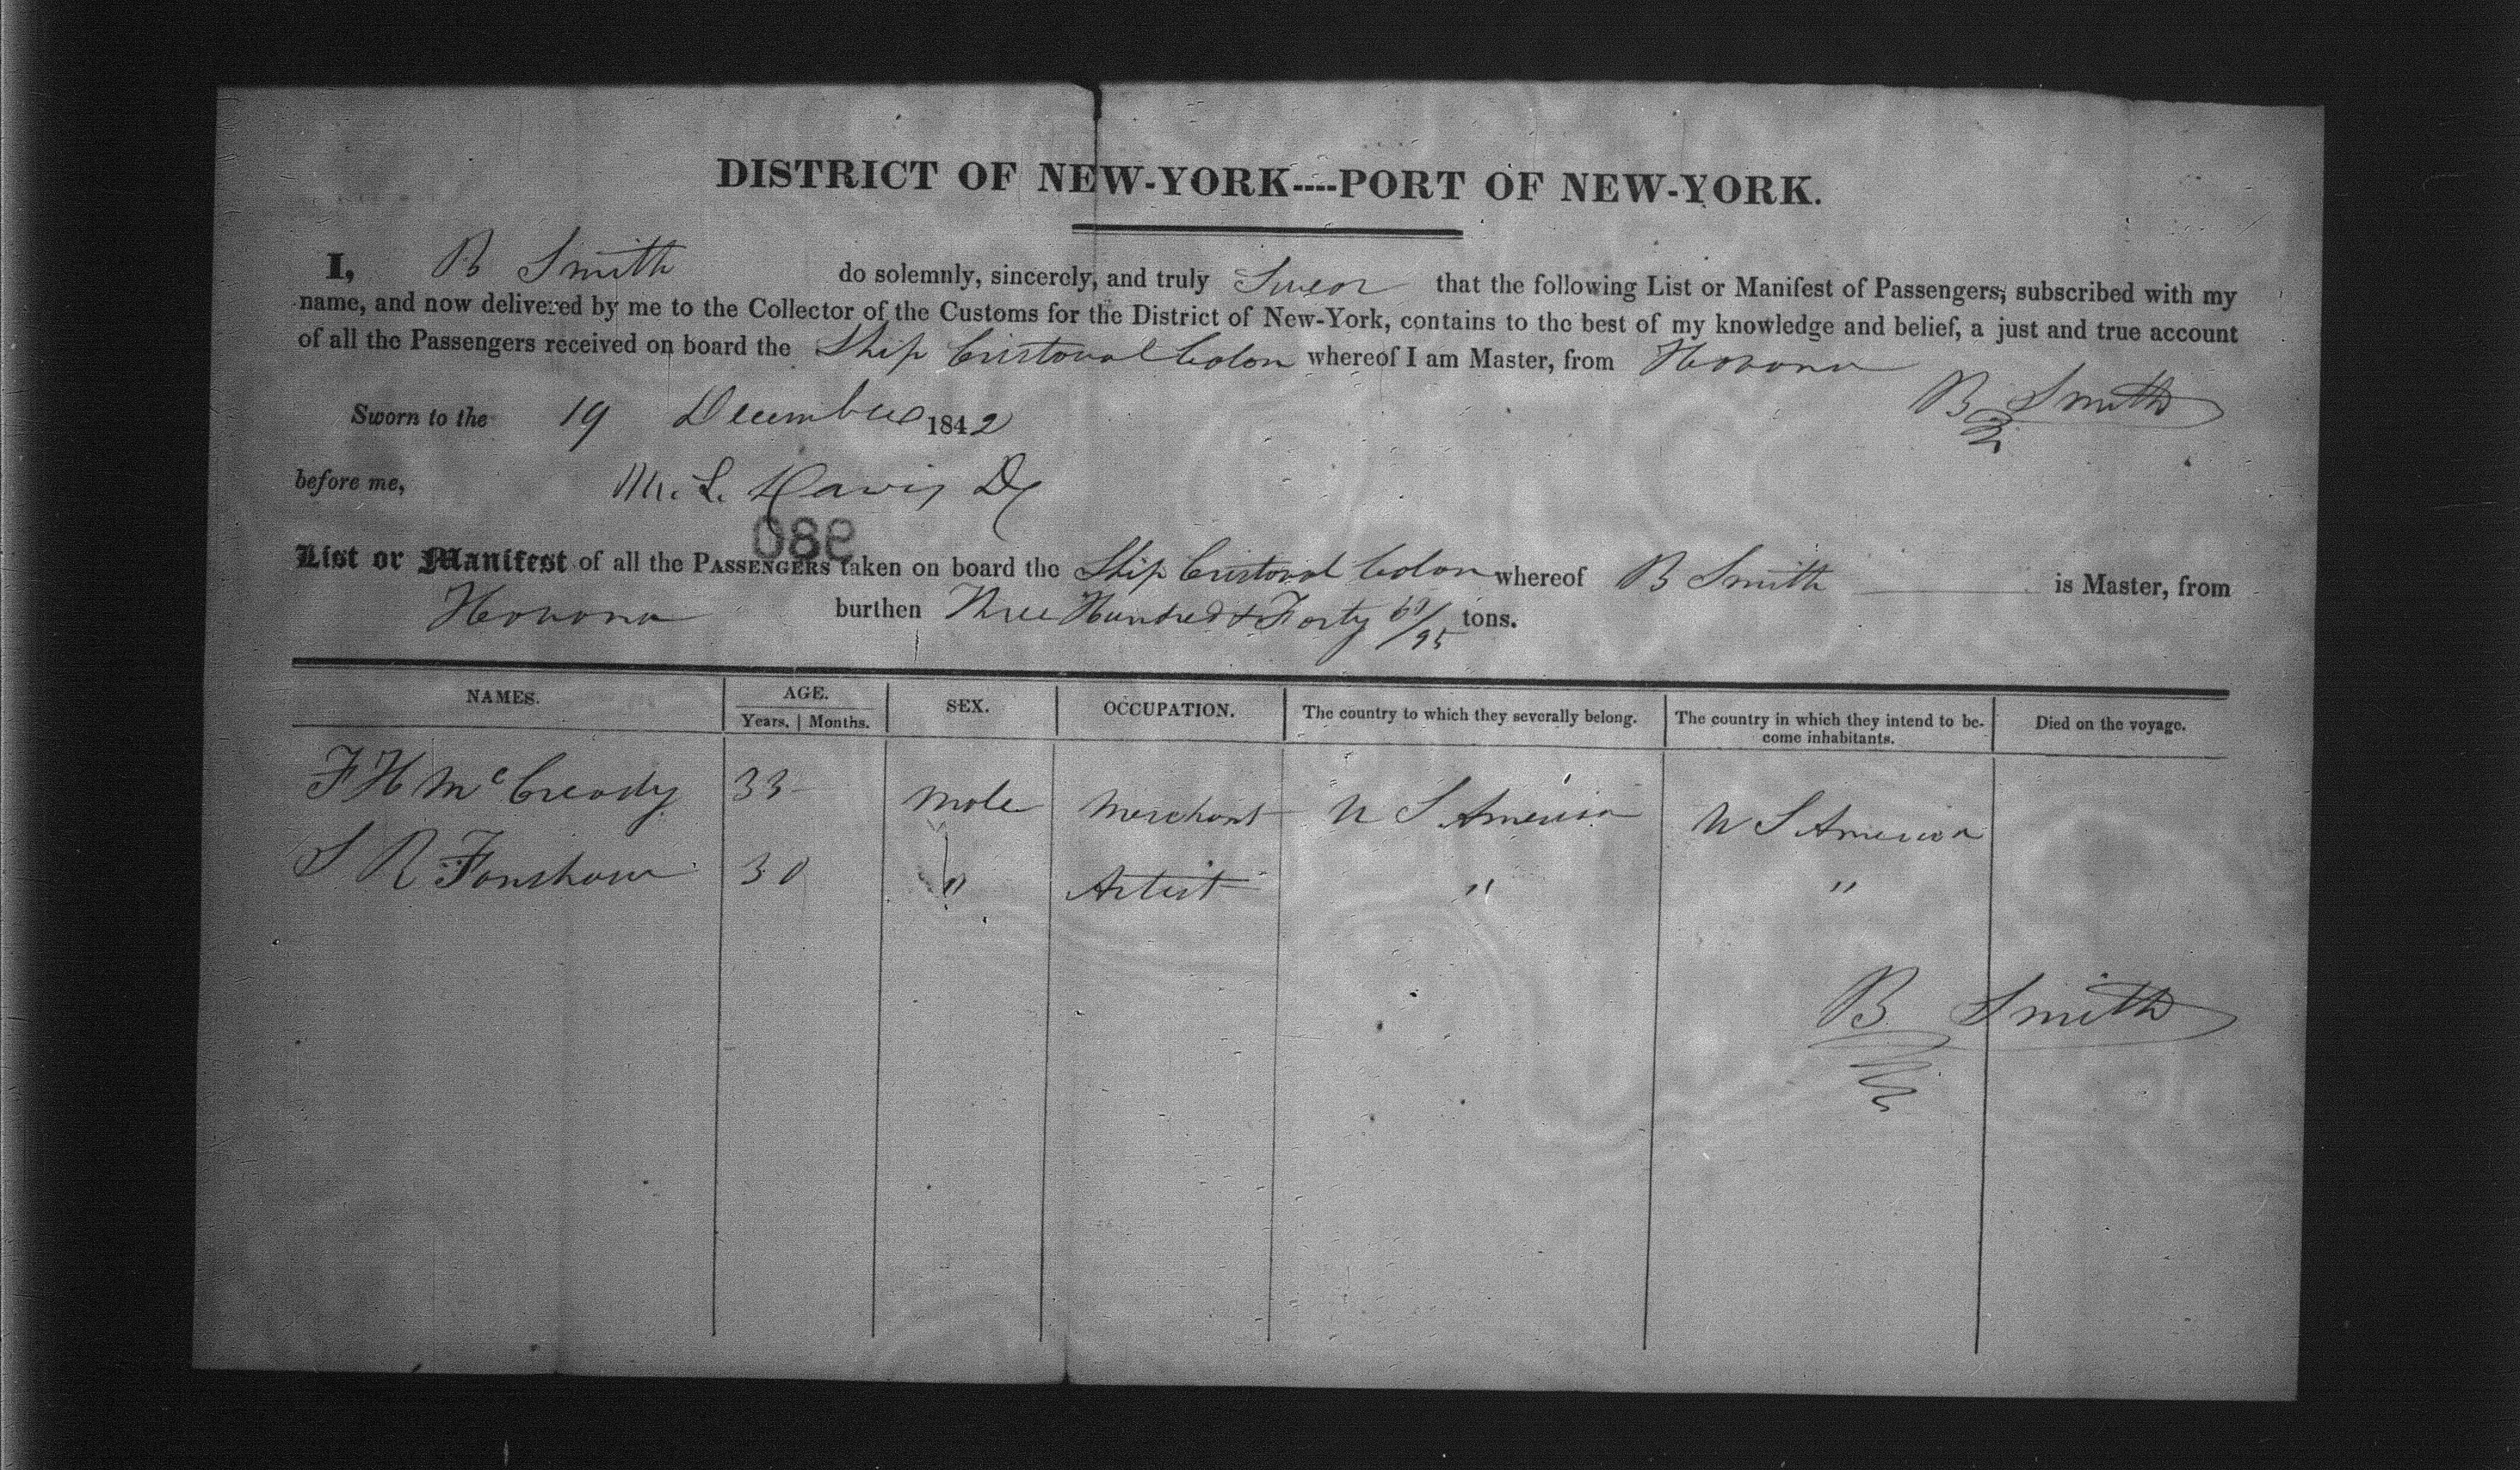 DISTRICT OF NEW-YORK----PORT OF NEW-YORK.
I, B Smith do solemnly, sincerely, and truly Swear that the following List or Manifest of Passengers, subscribed with my
name, and now delivered by me to the Collector of the Customs for the District of New-York, contains to the best of my knowledge and belief, a just and true account
of all the Passengers received on board the Ship Cristoval Colon whereof I am Master, from Havana
B Smith
Sworn to the 19 December 1842
before me, M. L. Davis
980
List or Manifest of all the PASSENGERS taken on board the Ship Cristoval Colon whereof B Smith is Master, from
Havana burthen Three Hundred & Forty /95 tons.
NAMES. AGE. SEX. OCCUPATION. The country to which they severally belong. The country in which they intend to be- Died on the voyage.
Years. | Months. come inhabitants.
F H McCready 33 Male Merchant U S America U S America
S R Fanshaw 30 " Artist " "
B Smith